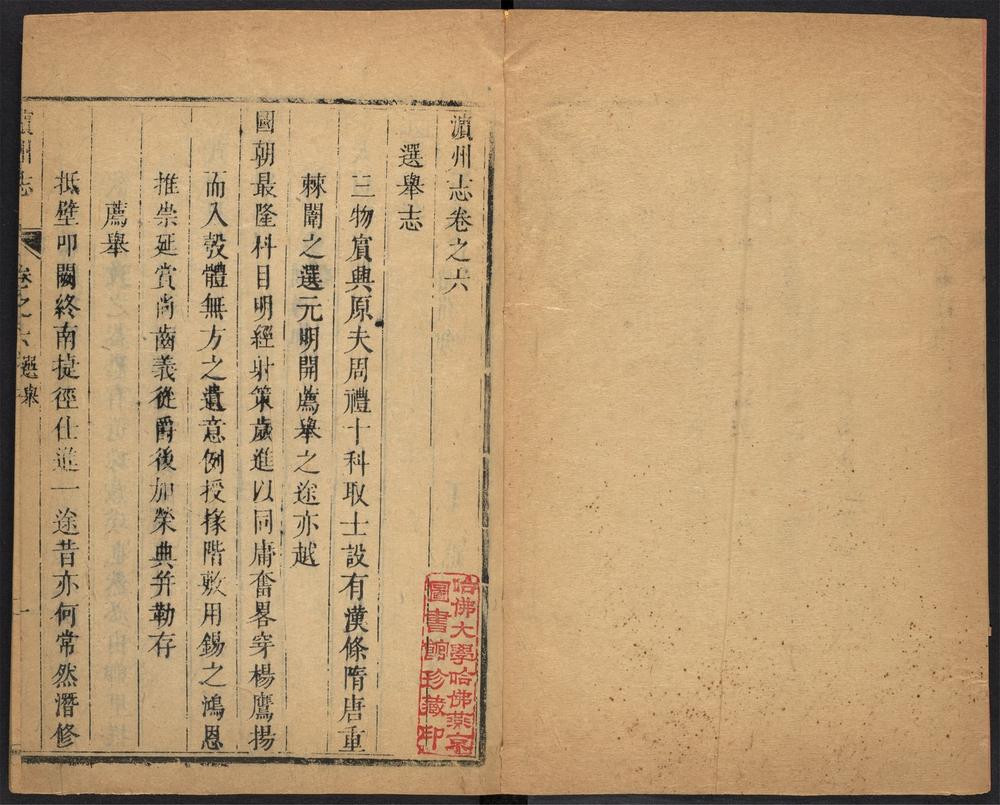 濵州志卷之六
選舉志
三物賔興原夫周禮十科取士設有漢條隋唐重
棘闈之選元明開薦舉之途亦越
國朝最隆科目明經射策歲進以同庸奮畧穿楊鷹揚
而入彀體無方之遺意例授掾階敷用錫之鴻恩
推崇延賞尚齒義從爵後加榮典并勒存
薦舉
抵壁叩闕終南捷徑仕進一途昔亦何常然潛修
濵州志
卷之六
選舉
一
哈佛大學哈佛燕京
圖書館珍藏印